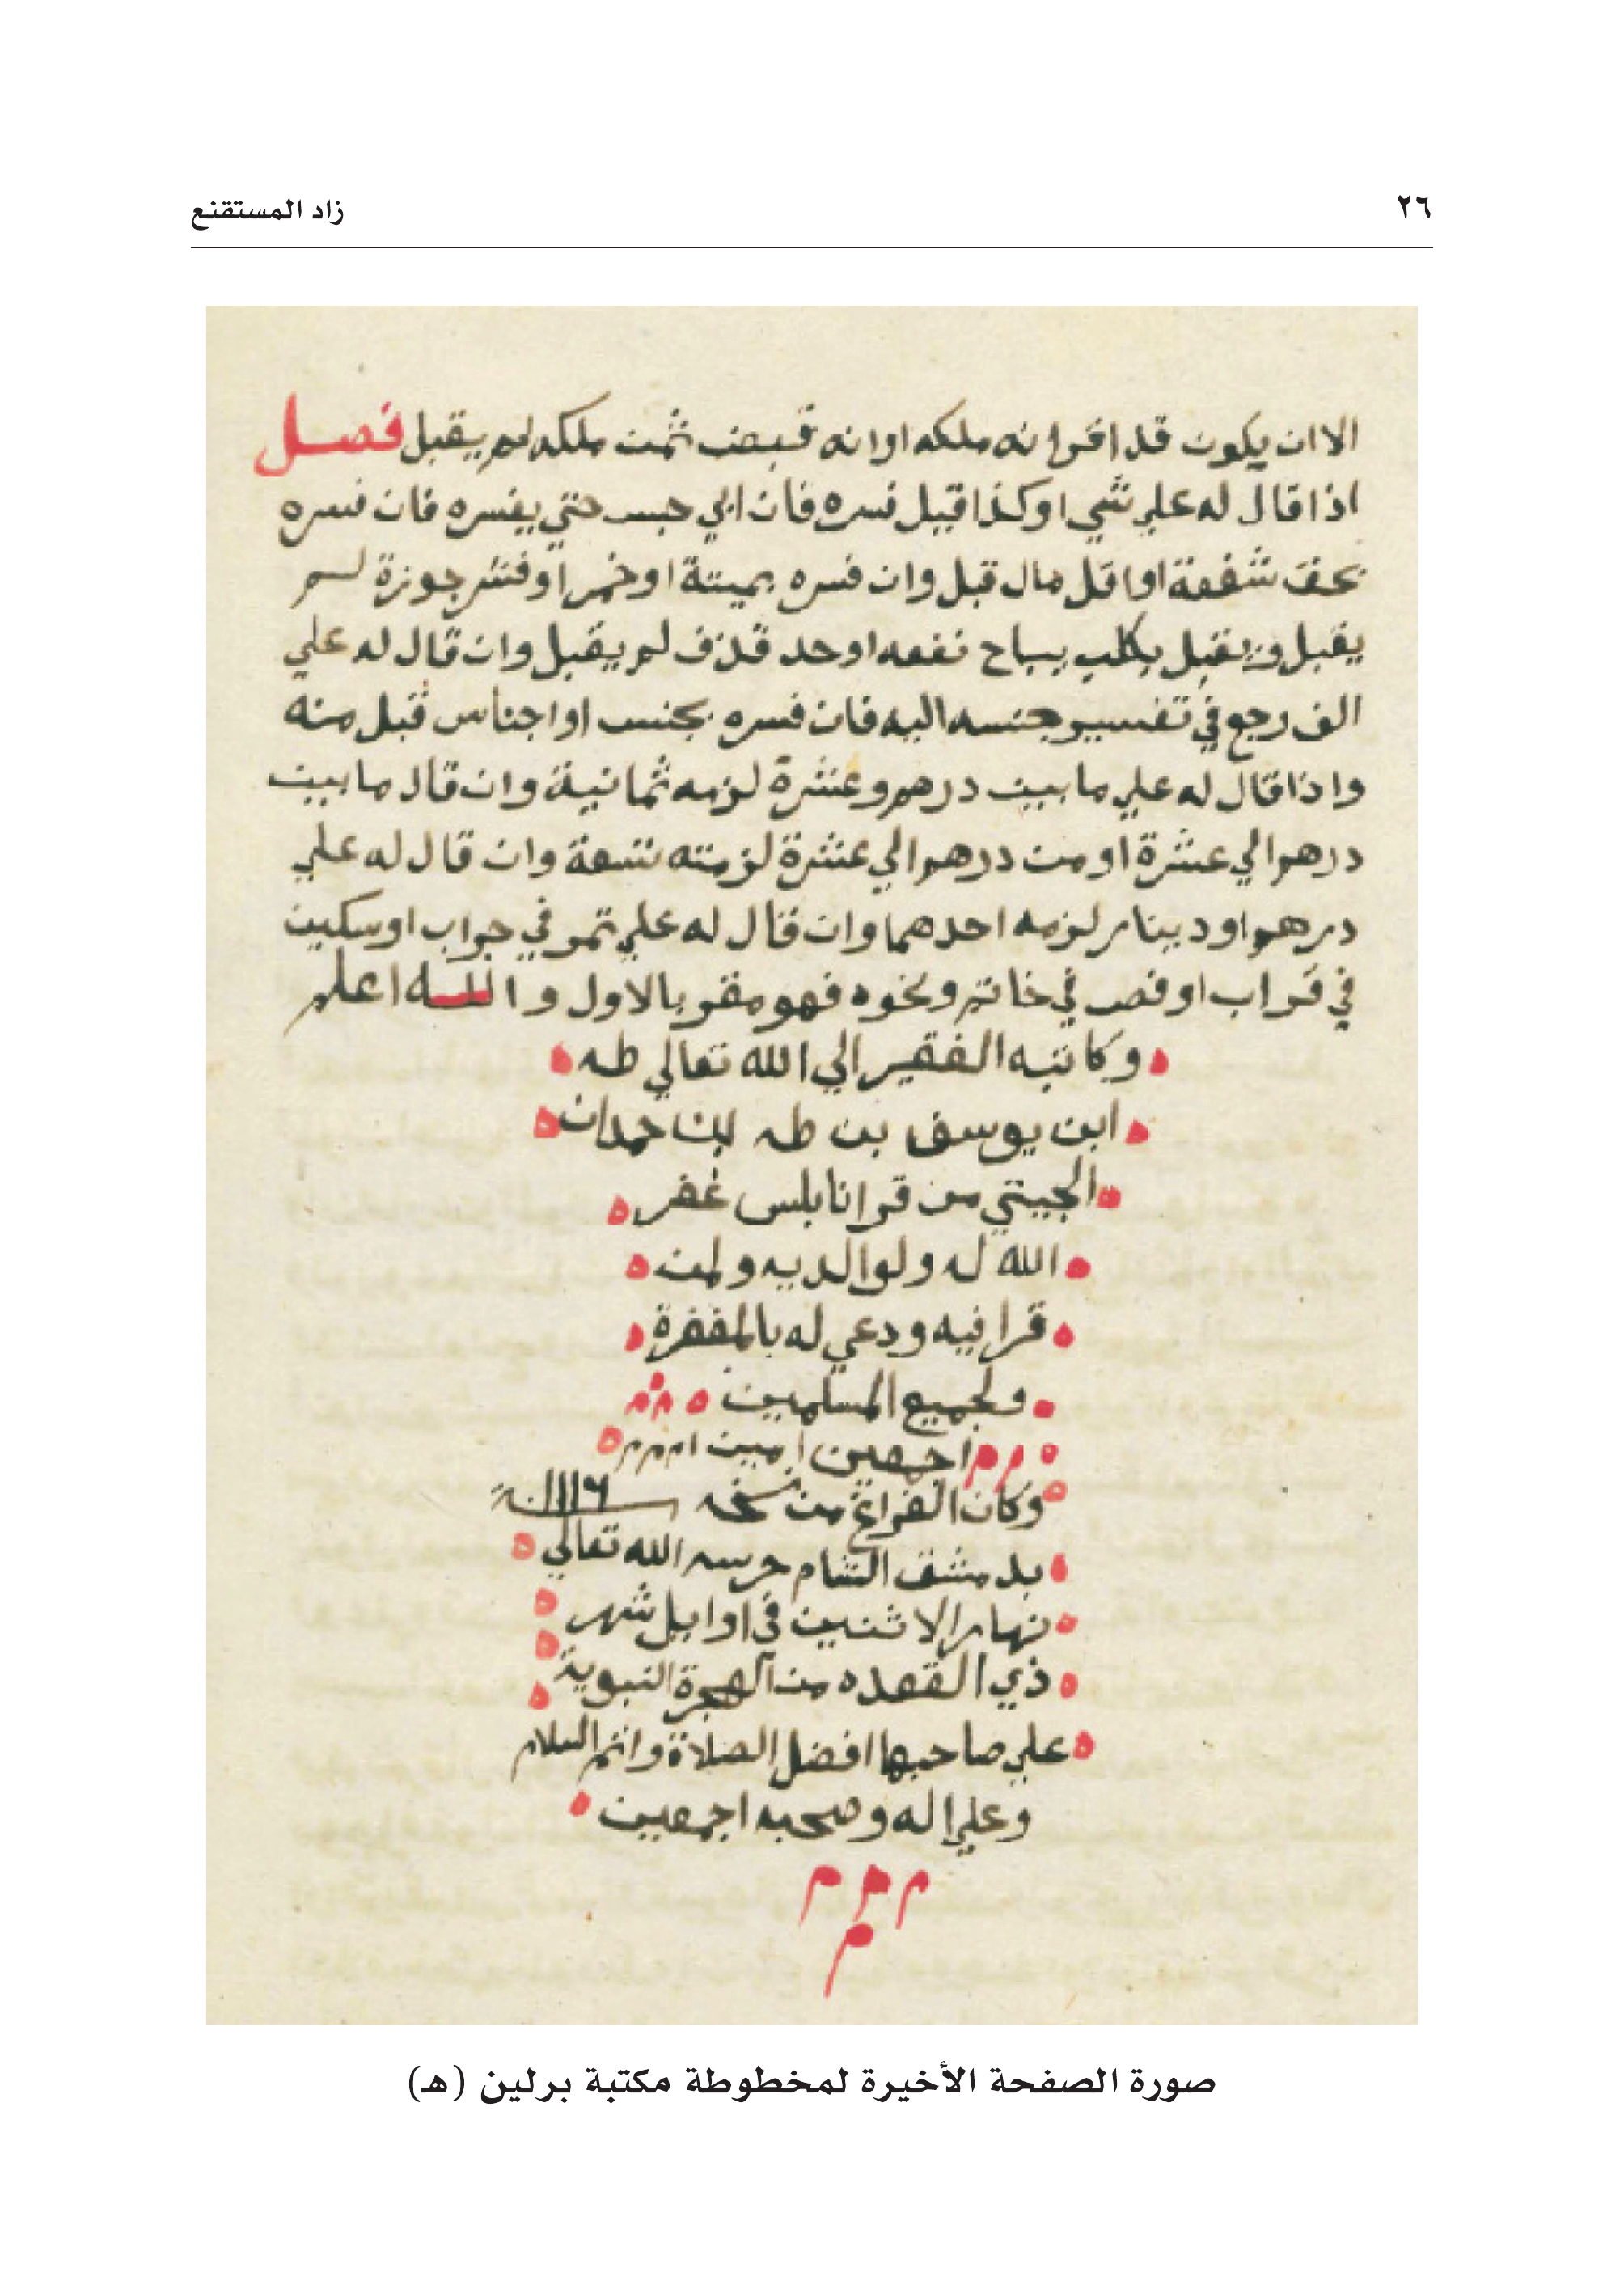 ٢٦
زاد المستقنع
الا ان يكون قد اقر انه ملكه او انه قبض ثمن ملكه لم يقبل فصل
اذا قال له علي شي او كذا قيل فسره فان ابي حبس حتي يفسره فان فسره
بحق شفعة او اقل مال قبل وان فسره بميتة او خمر او قشر جوزة لم
يقبل ويقبل بكلب يباح نفعه او حد قذف لم يقبل وان قال له علي
الف رجع في تفسير جنسه اليه فان فسره بجنس او اجناس قبل منه
واذا قال له علي ما بين درهم وعشرة لزمه ثمانية وان قال ما بين
درهم الي عشرة او من درهم الي عشرة لزمته تسعة وان قال له علي
درهم او دينار لزمه احدهما وان قال له علي تمر في جراب او سكين
في قراب او فص في خاتم ونحوه فهو مقر بالاول والله اعلم
وكاتبه الفقير الي الله تعالي طه
ابن يوسف بن طه حمدان
الجيتي من قرا نابلس غفر
الله له ولوالديه ولمن
قرا فيه ودعي له بالمغفرة
ولجميع المسلمين
اجمعين امين
وكان الفراغ من نسخه ١١١٦
بدمشق الشام حرسه الله تعالي
نهار الاثنين في اوايل شهر
ذي القعده من الهجرة النبوية
علي صاحبها افضل الصلاة واتم السلام
وعلي اله وصحبه اجمعين
م م م
م
صورة الصفحة الأخيرة لمخطوطة مكتبة برلين (هـ)